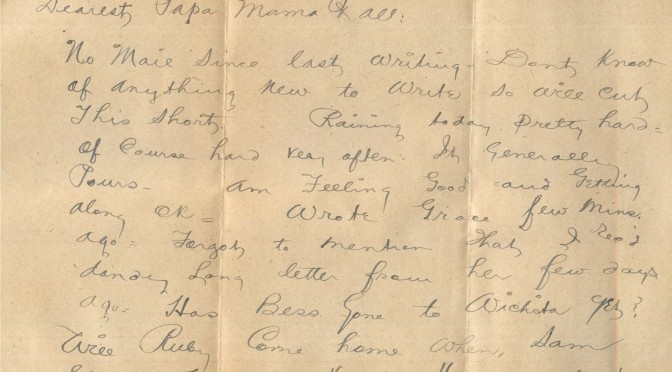 Dearest Papa Mama & all:
No Mail Since last writing - Dont Know
of anything new to Write so will cut
This short. Raining today pretty hard =
Of Course hard very often. It Generally
Pours - am Feeling Good and Getting
along OK = Wrote Grace few Mins.
ago = Forgot to mention that I Rec'd
dandy Long letter from her few days
ago = Has Bess gone to Wichita yet?
Will Ruby Come home when Sam